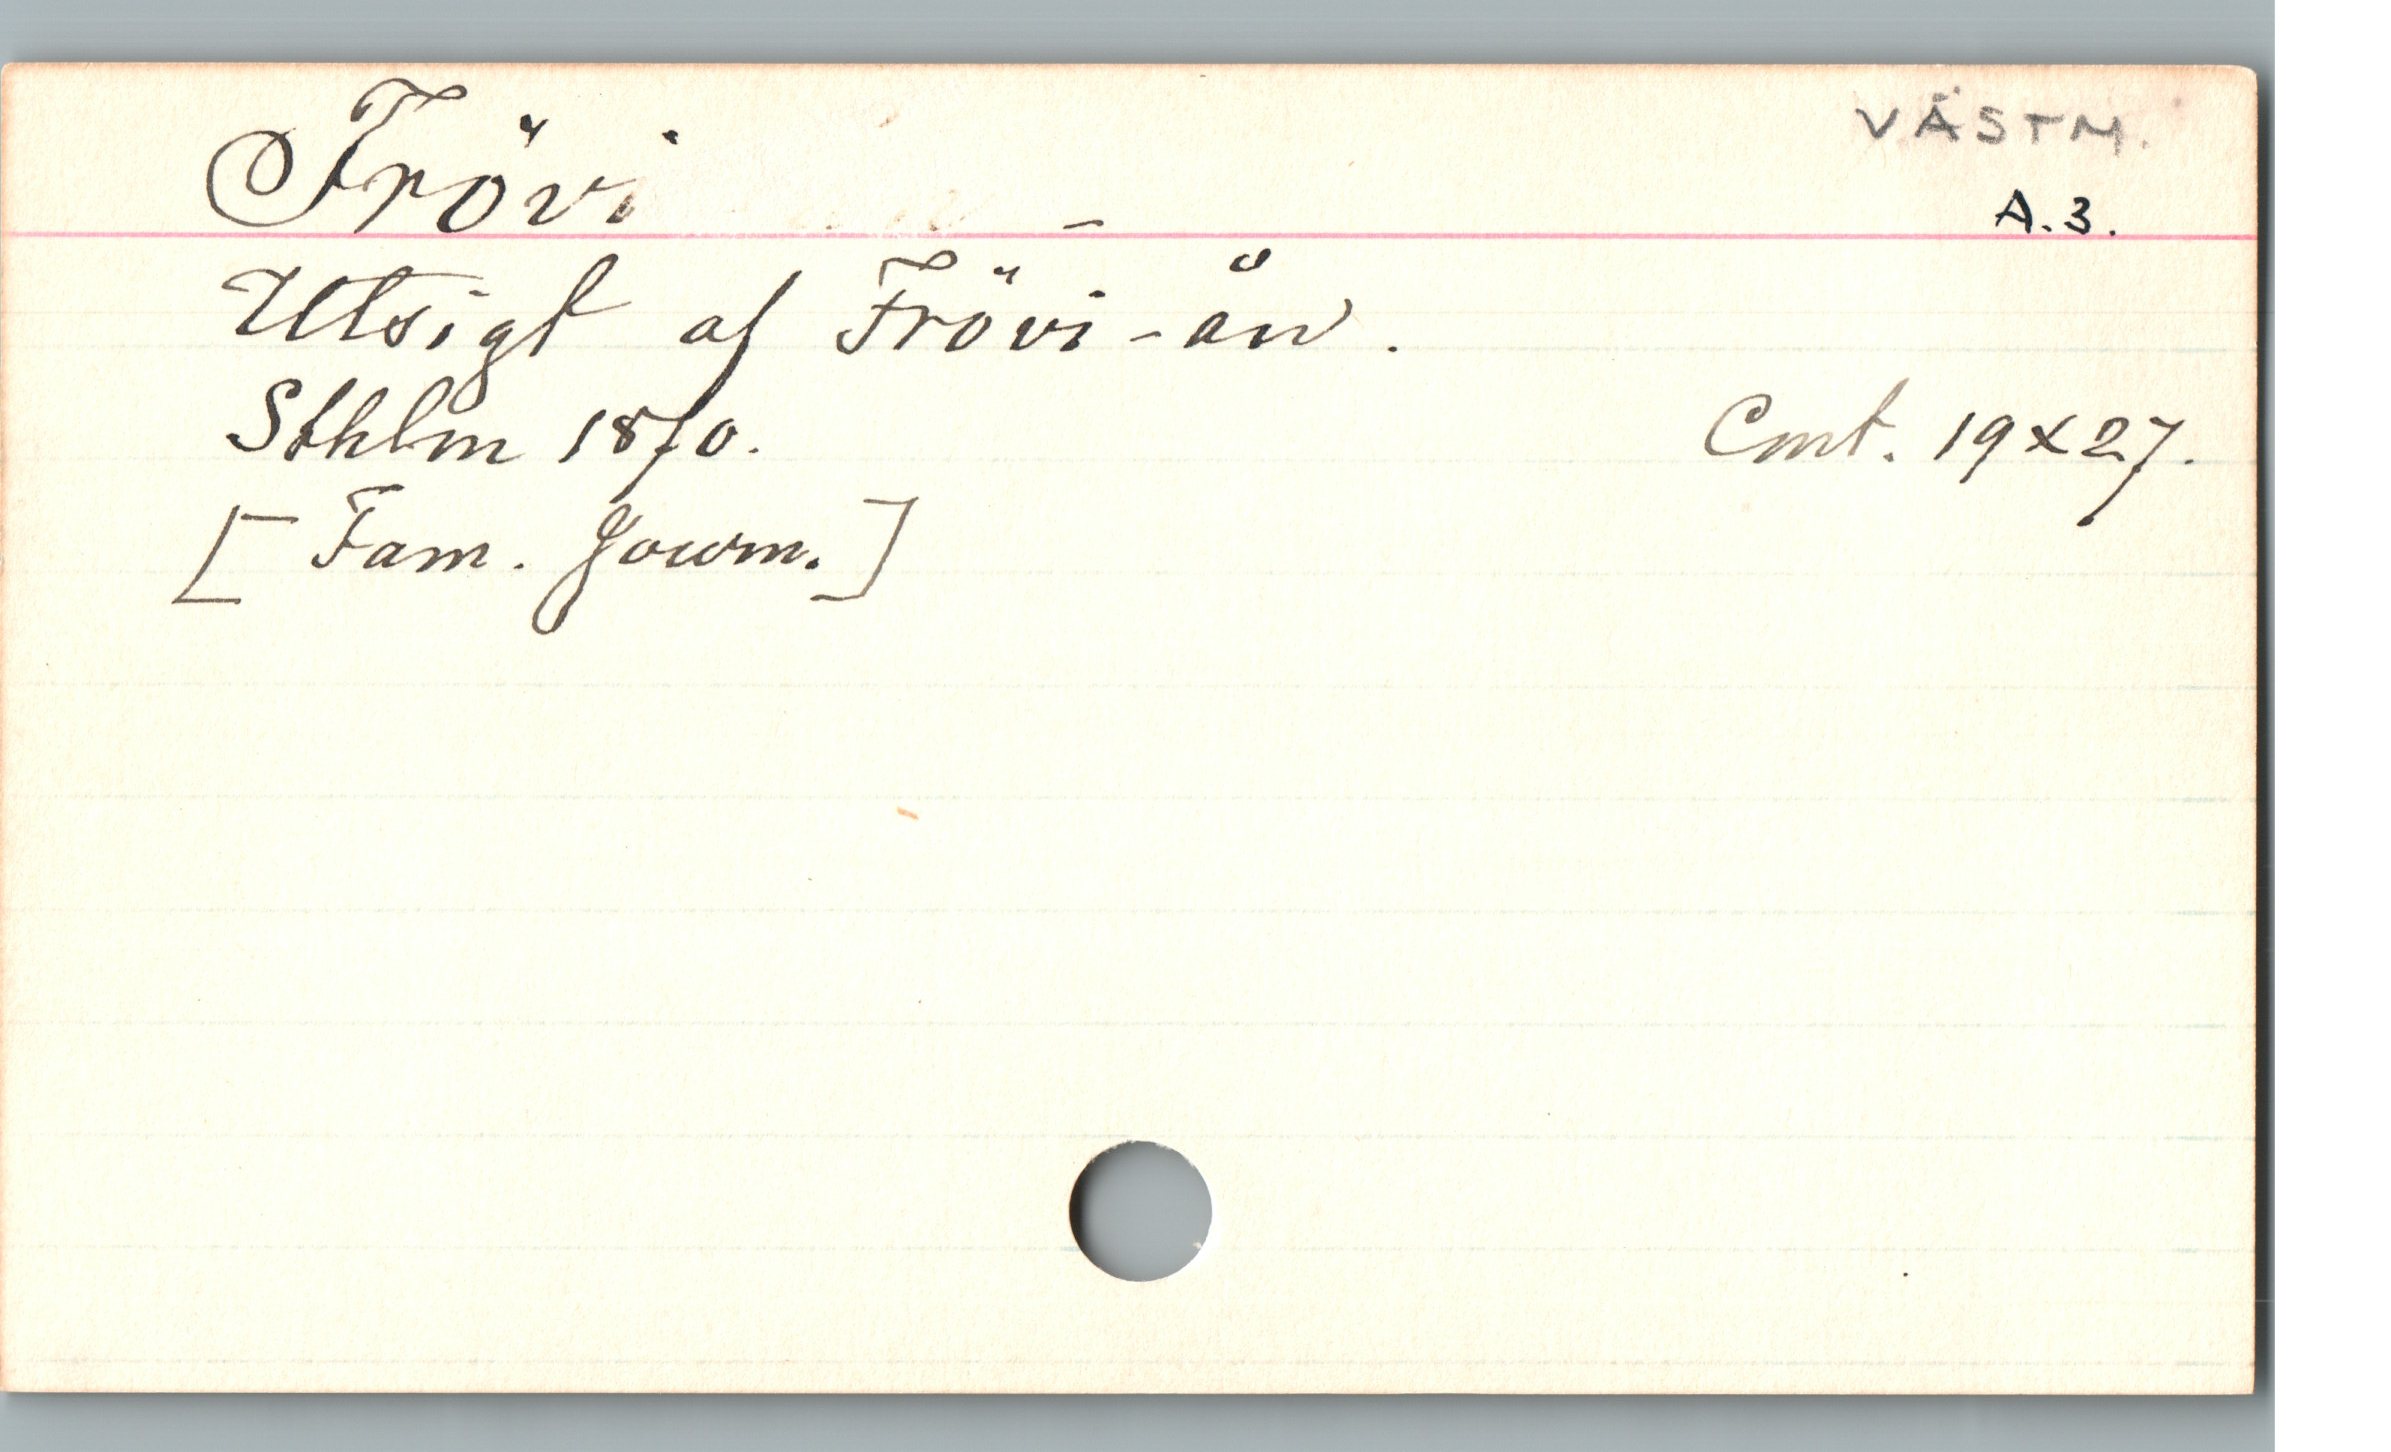 VÄSTM.
Frövi
A.3.
Utsigt af Frövi-ån.
Sthlm 1870.
Cmt. 19x27.
[Fam. Journ.]